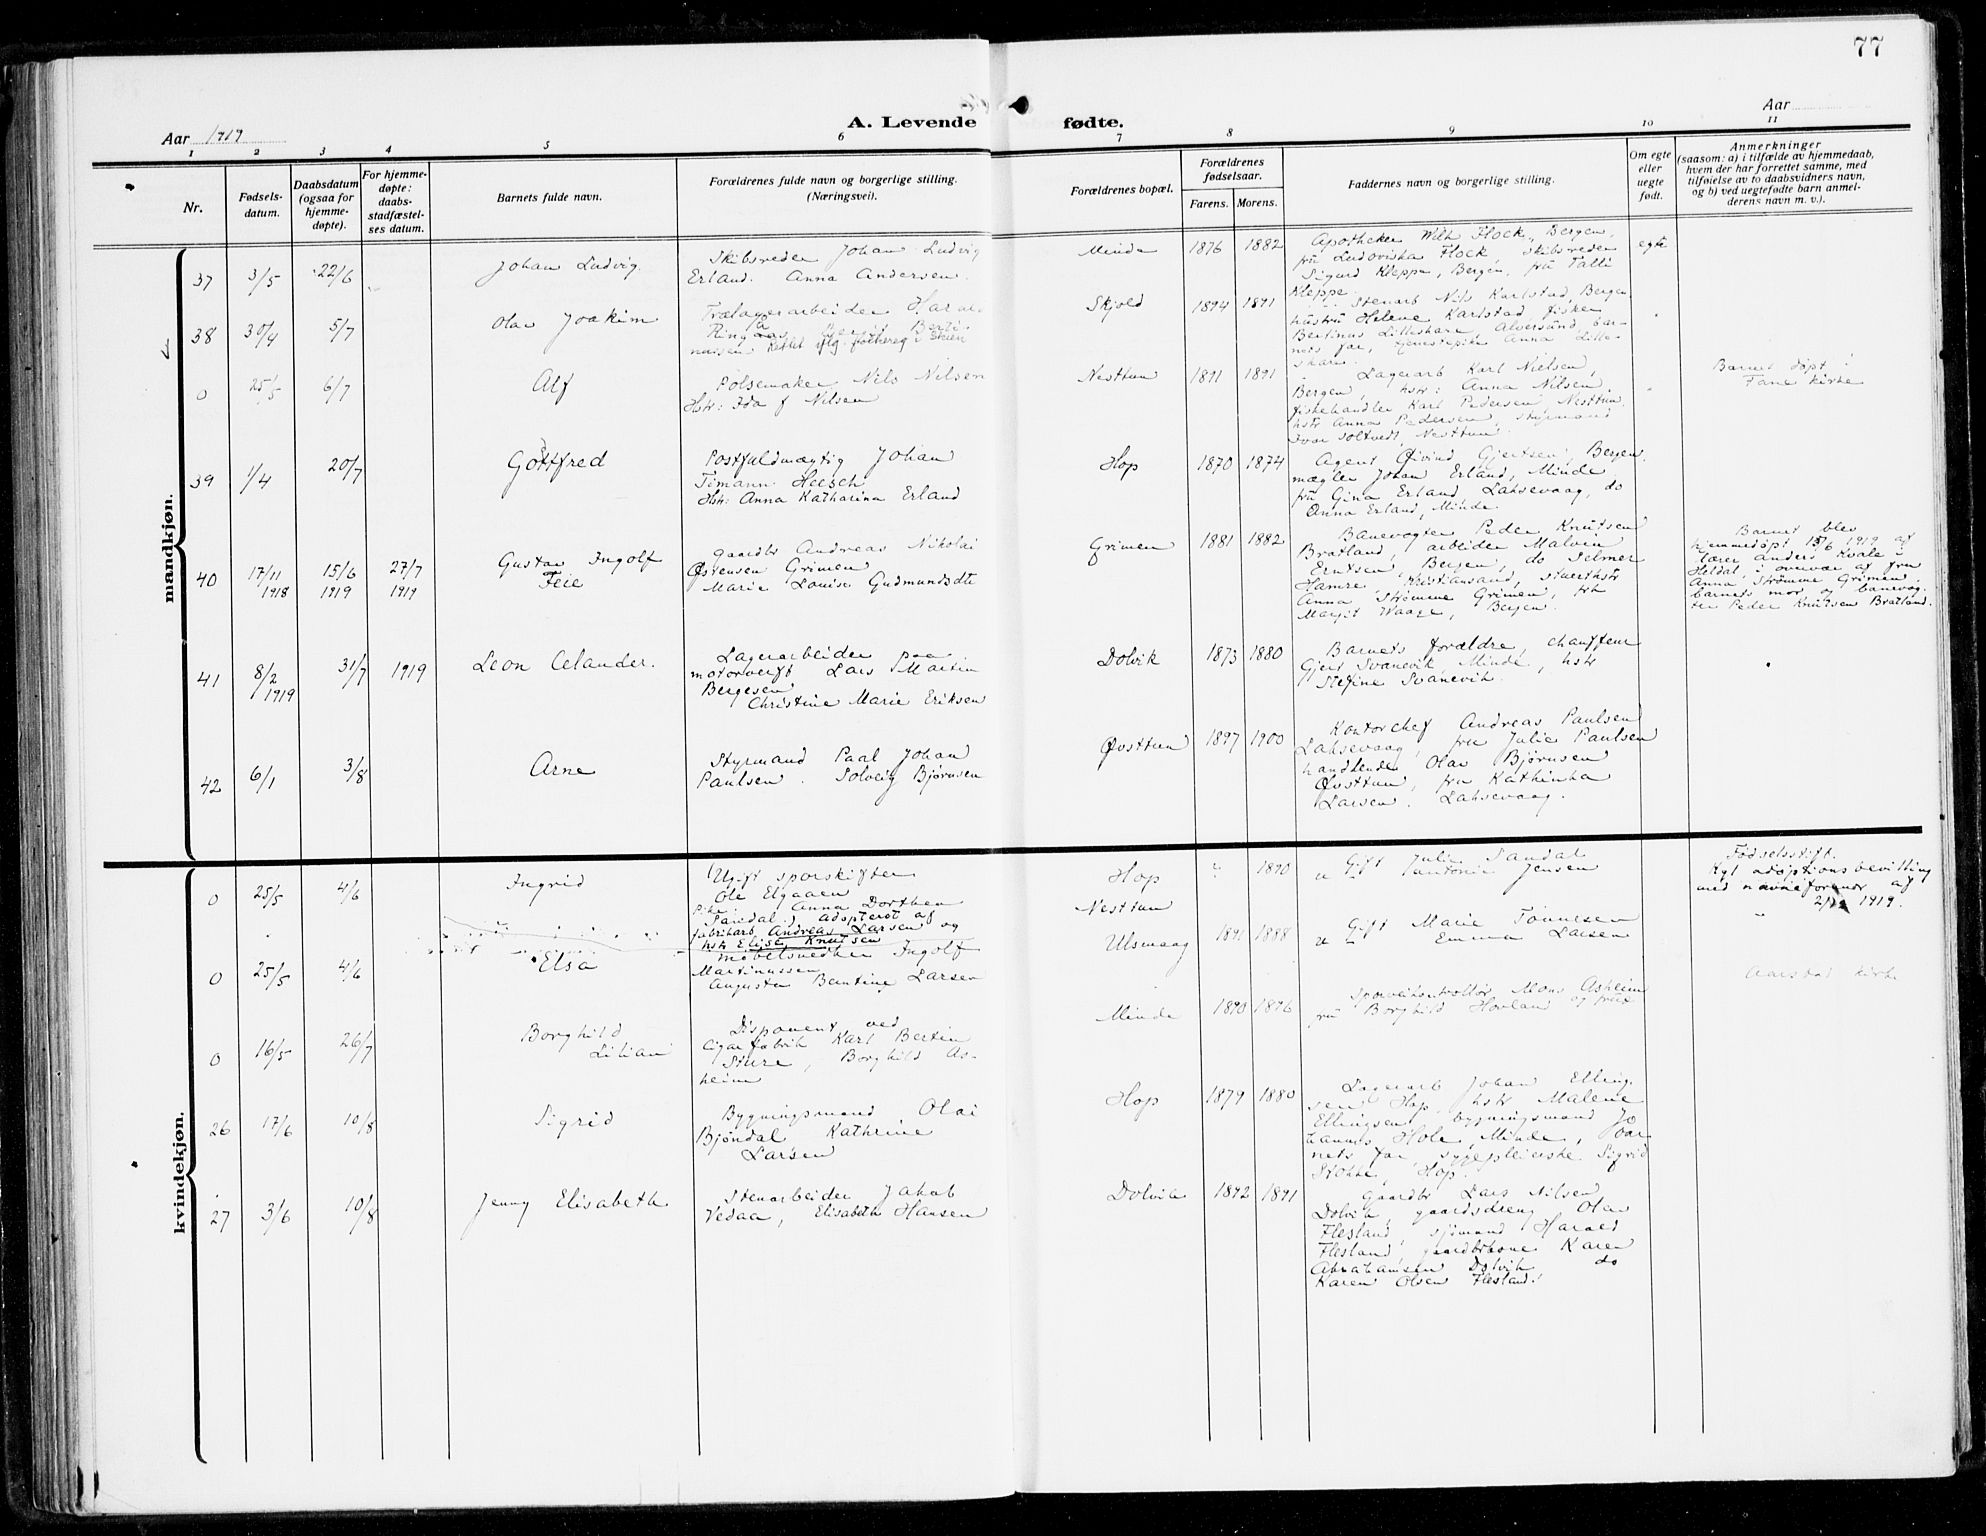 77
Aar 1919
A. Levende fødte.
Aar
1 2 3 4 5 6 7 8 9 10 11
Nr.
Fødsels-
datum.
Daabsdatum
(ogsaa for
hjemme-
døpte).
For hjemme-
døpte:
daabs-
stadfæstel-
ses datum.
Barnets fulde navn.
Forældrenes fulde navn og borgerlige stilling.
(Næringsvei).
Forældrenes bopæl.
Forældrenes
fødselsaar.
Farens. Morens.
Faddernes navn og borgerlige stilling.
Om egte
eller
uegte
født.
Anmerkninger
(saasom: a) i tilfælde av hjemmedaab,
hvem der har forrettet samme, med
tilføielse av to daabsvidners navn,
og b) ved uegtefødte barn anmel-
derens navn m. v.).
mandkjøn.
37 3/5 22/6
Johan Ludvig
Skibsreder Johan Ludvig
Erland. Anna Andersen.
Minde 1876 1882
Apotheker Wilh Flock, Bergen,
fru Ludovikka Flock, Skibsreder
Sigurd Kleppe, Bergen, fru Talli
Kleppe.
egte
38 30/4 5/7
Olav Joakim
Trælagerarbeider Haral
Skjold 1894 1891
Stenarb Nils Karlstad, Bergen
hustru Helene Karlstad, fisker
Bertinus Lilleskare, Alversund, bar-
nets far, tjenestepike Anna Lille-
skare.
0 25/5 6/7
Alf
Pølsemaker Nils Nilsen
Hstr: Ida f Nilsen
Nesttun 1891 1891
Lagerarb Karl Nielsen,
Bergen, hstr: Anna Nilsen,
fiskehandler Karl Pedersen, Nesttun.
hstr Anna Pedersen, styrmand
Ivar Soltvedt, Nesttun.
Barnet døpt i
Fane kirke
39 1/4 20/7
Gottfred
Postfuldmægtig Johan
Timann Heesch
Hstr: Anna Katharina Erland
Hop 1870 1874
Agent Øivind Gjertsen, Bergen.
mægler Johan Erland, Minde
fru Gina Erland, Laksevaag, do
Anna Erland, Minde.
40 17/11 1918 15/6 1919 27/7 1919
Gustav Ingolf
Feie
Gaardbr Andreas Nikolai
Østensen Grimen
Marie Louise Gudmundsdtr
Grimen 1881 1882
Banevogter Peder Knutsen
Bratland, arbeider Malvin
Erntsen, Bergen, do Delmer
Hamre, Kristiansand, stuerthstr
Anna Strømme Grimen, frk
Margit Waage, Bergen.
Barnet blev
hjemmedøpt 15/6 1919 af
lærer Anders Kvale i
Heldal, i overvær af fru
Anna Strømme Grimen,
barnets mor og banevog.
ter Peder Knutsen Bratland.
41 8/2 1919 31/7 1919
Leon Celander.
Lagerarbeider paa
motorverft Lars Martin
Bergesen
Christine Marie Eriksen
Dolvik 1873 1880
Barnets forældre, chauffeur
Gjert Svanevik, Minde, hstr
Stefine Svanevik.
42 6/1 3/8
Arne
Styrmand Paal Johan
Paulsen. Solveig Bjørnsen
Øvsttun 1897 1900
Kontorchef Andreas Paulsen
Laksevaag, fru Julie Paulsen
handlende Olav Bjørnsen
Øvsttun, fru Kathinka
Larsen. Laksevaag.
kvindekjøn.
0 25/5 4/6
Ingrid
Ugift sporskifter
Ole Elgaaen
Pike Anna Dorthea
Sandal) adopteret af
fabrikarb, Andreas Larsen og
hstr Elise, Knutsen
Hop
Nesttun
" 1890
Gift Julie Sandal
u Antonie Jensen
Fødselsstift.
Kgl adoptionsbevilling
med navneforandr af
1919.
0 25/5 4/6
Elsa
Møbelsnedker Ingolf
Martinussen
Augusta Berntine Larsen
Ulsmaag 1891 1888
Gift Marie Tønnesen
u Emma Larsen
Aarstad kirke
0 16/5 26/7
Borghild
Lilian
Disponent ved
Cigarfabrik Karl Bertin
Sture, Borghild As-
heim
Minde 1890 1896
Sporveikontrollør Mons Asheim
fru Borghild Hovland og frue
26 17/6 10/8
Sigrid
Bygningsmand Olai
Bjøndal Kathrine
Larsen
Hop 1879 1880
Lagerarb Johan Elling
sen Hop, hstr Malene
Ellingsen, bygningsmand Jo
hannes Hole, Minde, bar
nets far, sygepleierske Sigrid
Stokke, Hop.
27 3/6 10/8
Jenny Elisabeth
Stenarbeider Jakob
Vedaa, Elisabeth Hansen
Dolvik 1892 1891
Gaardbr Lars Nilsen
Dolvik, gaardsdreng Olav
Flesland, sjømand Harald
Flesland, gaardbrkone Karen
Abrahamsen Dolvik do
Karen Olsen Flesland.